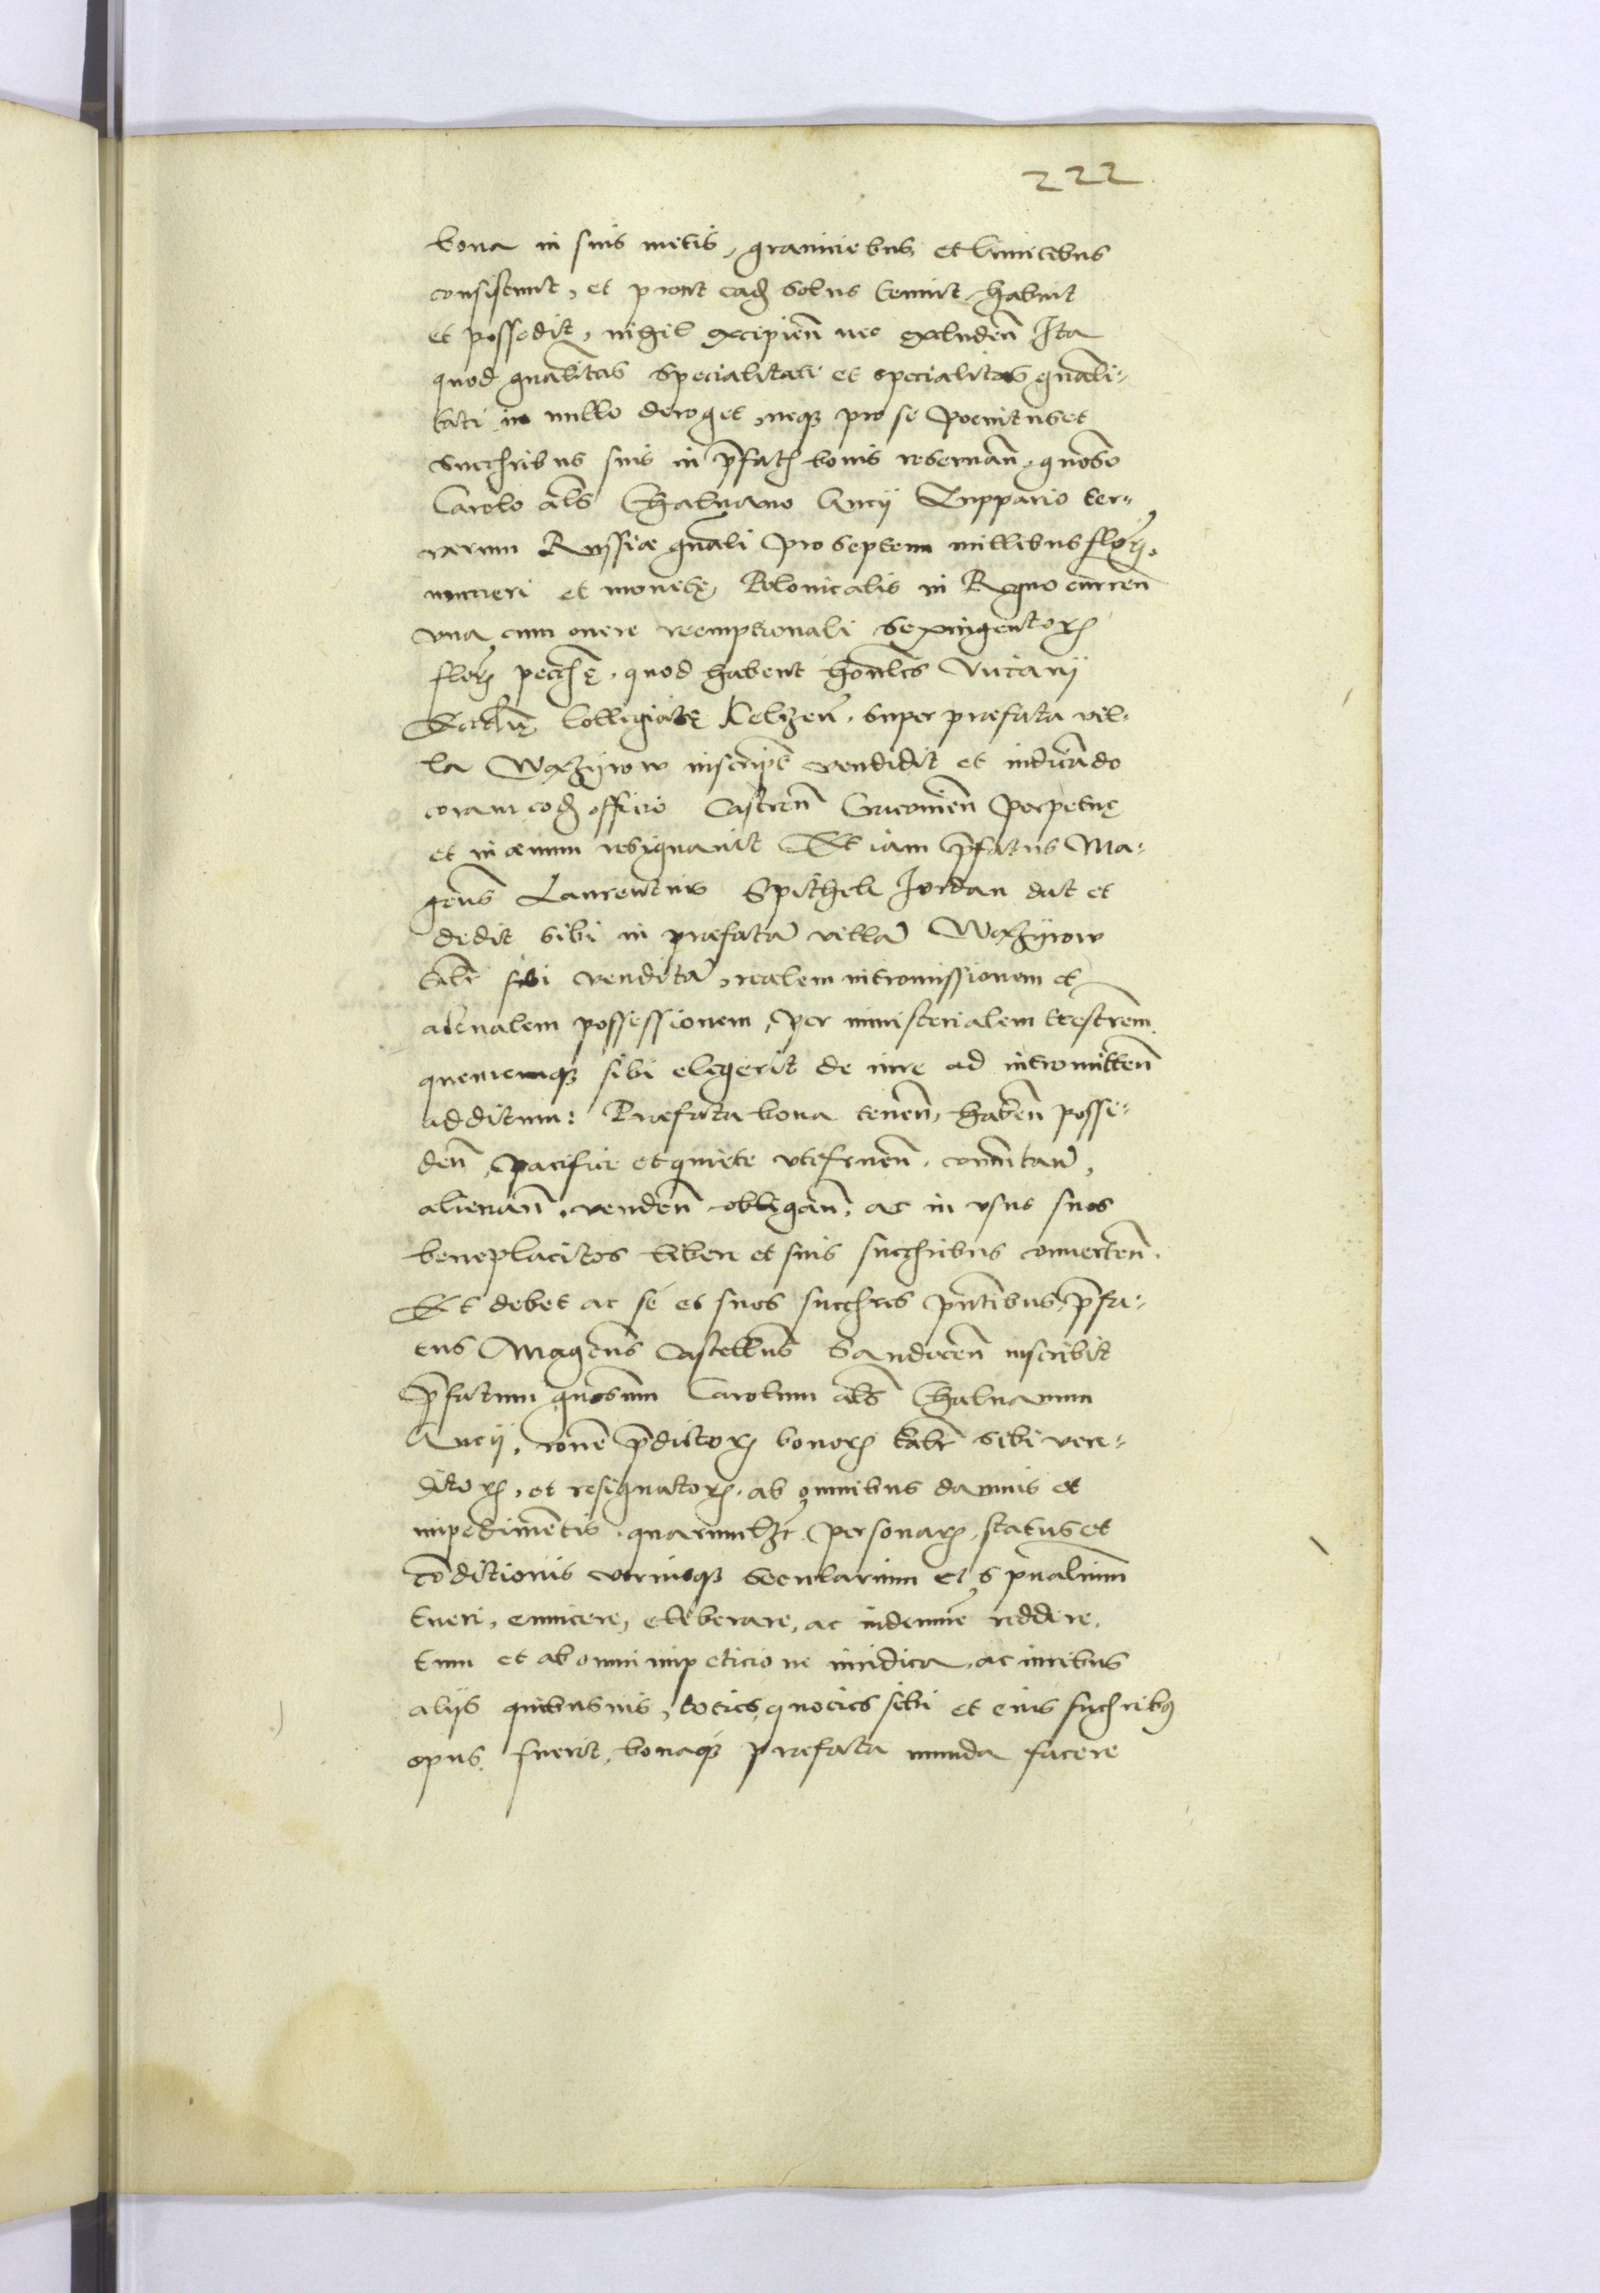 222
bona in suis metis, graniciebus et limitibus
consistunt, et prout eadē solus tenuit habuit
et possedit, nihil excipien̄ nec excluden̄ Ita
quod gn̄alitas specialitati et specialitas gn̄ali-
tati in nullo deroget, neqꝫ pro se penitus et
succ̄ribus suis in p̄fatis bonis reservan̄, gn̄oso
Carolo al̄s Galuano Ancij Zuppario ter-
rarum Russiæ gn̄ali pro septem millibus flor̄.
numeri et monetę Polonicalis in Regno curren̄
vna cum onere reemptionali sexingentoꝝ
flor̄ pec̄nię, quod habent hon̄les Vicarij
Ecclīę Collegiatę Kelczen̄, super præfata vil-
la Wozijrow inscript̄ vendidit et
coram eod̄ officio Castren̄ Cracouien̄ perpetuę
et in æuum resignauit Et iam p̄fatus Ma-
gcūs Laurentius Spithek Jordan dat et
dedit sibi in præfatā villā Wozijrow
tal̄r sibi venditā, realem intromissionem et
actualem possessionem, per ministerialem terrestrem
quemcunqꝫ sibi elegerit de iure ad intromitten̄
additum: Præfata bona tenen̄, haben̄ possi-
den̄, pacifice et quiete vtifruen̄, com̄utan̄,
alienan̄, venden̄ obligan̄, ac in vsus suos
beneplacitos libere et suis succ̄ribus conuerten̄.
Et debet ac se et suos succ̄res pn̄tibus, p̄fa-
tus Magcūs Castelln̄s Sandecen̄ inscribit
p̄fatum gn̄osum Carolum al̄s Galuanum
Ancij, rōne p̄dictoꝝ bonoꝝ tal̄r sibi ven-
ditoꝝ, et resignatoꝝ, ab omnibus damnis et
impedimētis, quarumlꝫt personaꝝ, status et
cōditionis vtriusqꝫ secularium et spūalium
tueri, euincere, eliberare, ac indemnē reddere,
tum et ab omni impeticione iuridica, ac iuribus
alijs quibusuis, toties quoties sibi et eius succ̄ribꝰ
opus fuerit, bonaqꝫ præfata munda facere